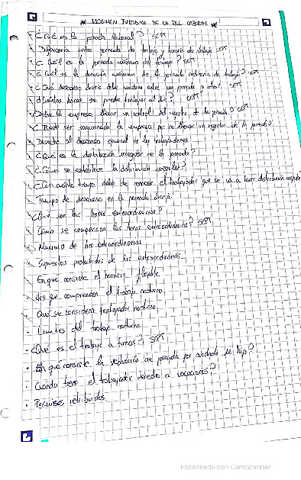 ¿Qué es la jornada laboral? SOTT
Diferencia entre jornada de trabajo y horario de trabajo SOTT
¿Cuál es la jornada máxima
¿Cuál es la duración máxima de la jornada ordinaria de trabajo? SOTT
¿Qué descanso diario debe mediar entre una jornada y otra? SOTT
¿Cuántas horas se puede trabajar al día? SOTT
¿Debe la empresa llevar un control del registro de la jornada? SOTT
¿Puede ser sancionada la empresa por no llevar un registro de la jornada?
Derecho al descanso semanal de los trabajadores
¿Qué es la distribución irregular de la jornada?
¿Cómo se establece la distribución irregular?
¿Con cuánto tiempo debe de conocer el trabajador que se va a hacer distribución irregular
Tiempo de descanso en la jornada diaria
¿Qué son las horas extraordinarias?
¿Cómo se compensan las horas extraordinarias? SOTT
Máximo de horas extraordinarias
Supuestos prohibidos de horas extraordinarias
En que consiste el horario flexible
Que comprende el trabajo nocturno
Que se considera trabajador nocturno
Límites del trabajo nocturno
¿Qué es el trabajo a turnos? SOTT
En que consiste la reducción de jornada por cuidado de hijo?
Cuándo tiene el trabajador derecho a vacaciones?
Permisos retribuidos
Escaneado con CamScanner